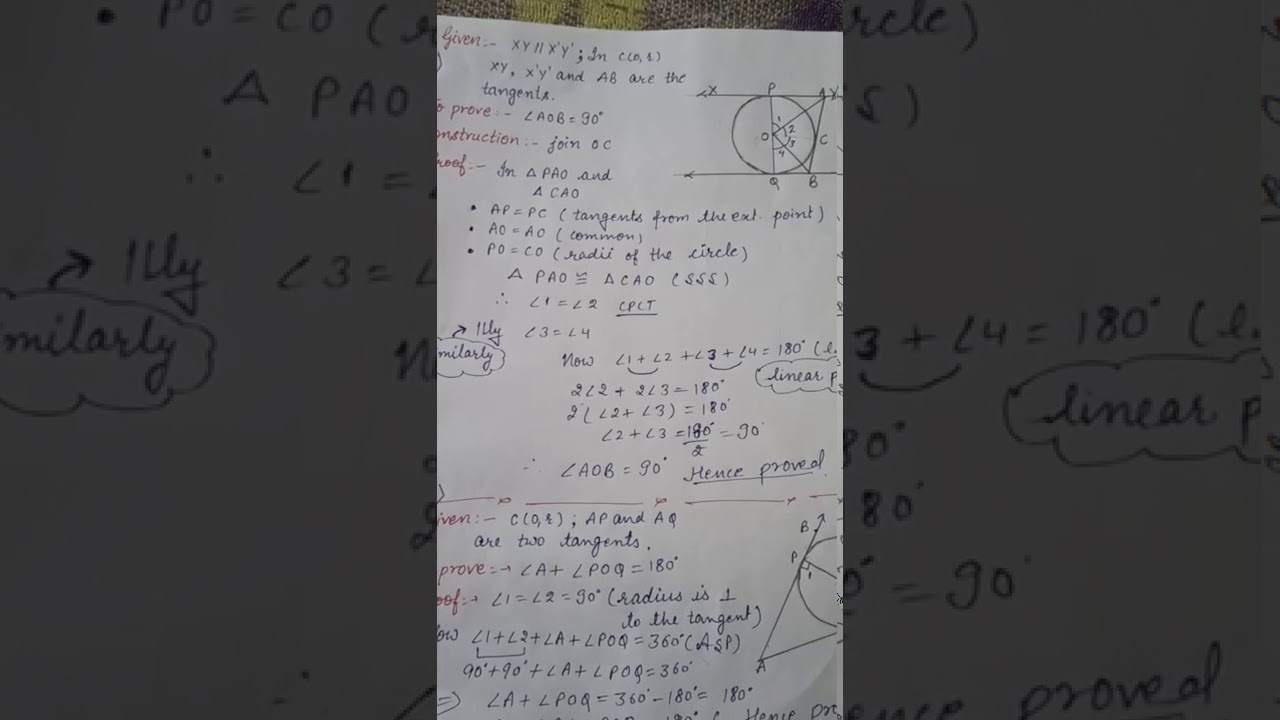 Given:- XY // X'Y' ; In C(O,r)
XY, X'Y' and AB are the
tangents.
o prove:- ∠AOB = 90°
onstruction:- join OC
roof:- In △ PAO and
△ CAO
• AP = PC ( tangents from the ext. point )
• AO = AO ( common )
• PO = CO ( radii of the circle )
△ PAO ≅ △ CAO ( SSS )
∴ ∠1 = ∠2 CPCT
→ Illy ∠3 = ∠4
milarly
Now ∠1 + ∠2 + ∠3 + ∠4 = 180° (l.
linear p
2∠2 + 2∠3 = 180°
2 ( ∠2 + ∠3 ) = 180°
∠2 + ∠3 = 180°/2 = 90°
∴ ∠AOB = 90° Hence proved.
X P A Y
O 1 2 3 4 C
Q B
iven:- C(O,r) ; AP and AQ
are two tangents.
prove:→ ∠A + ∠POQ = 180°
oof:→ ∠1 = ∠2 = 90° (radius is ⊥
to the tangent)
ow ∠1 + ∠2 + ∠A + ∠POQ = 360° (ASP)
90° + 90° + ∠A + ∠POQ = 360°
⇒) ∠A + ∠POQ = 360° - 180° = 180°
Hence pro
B
P
1
A